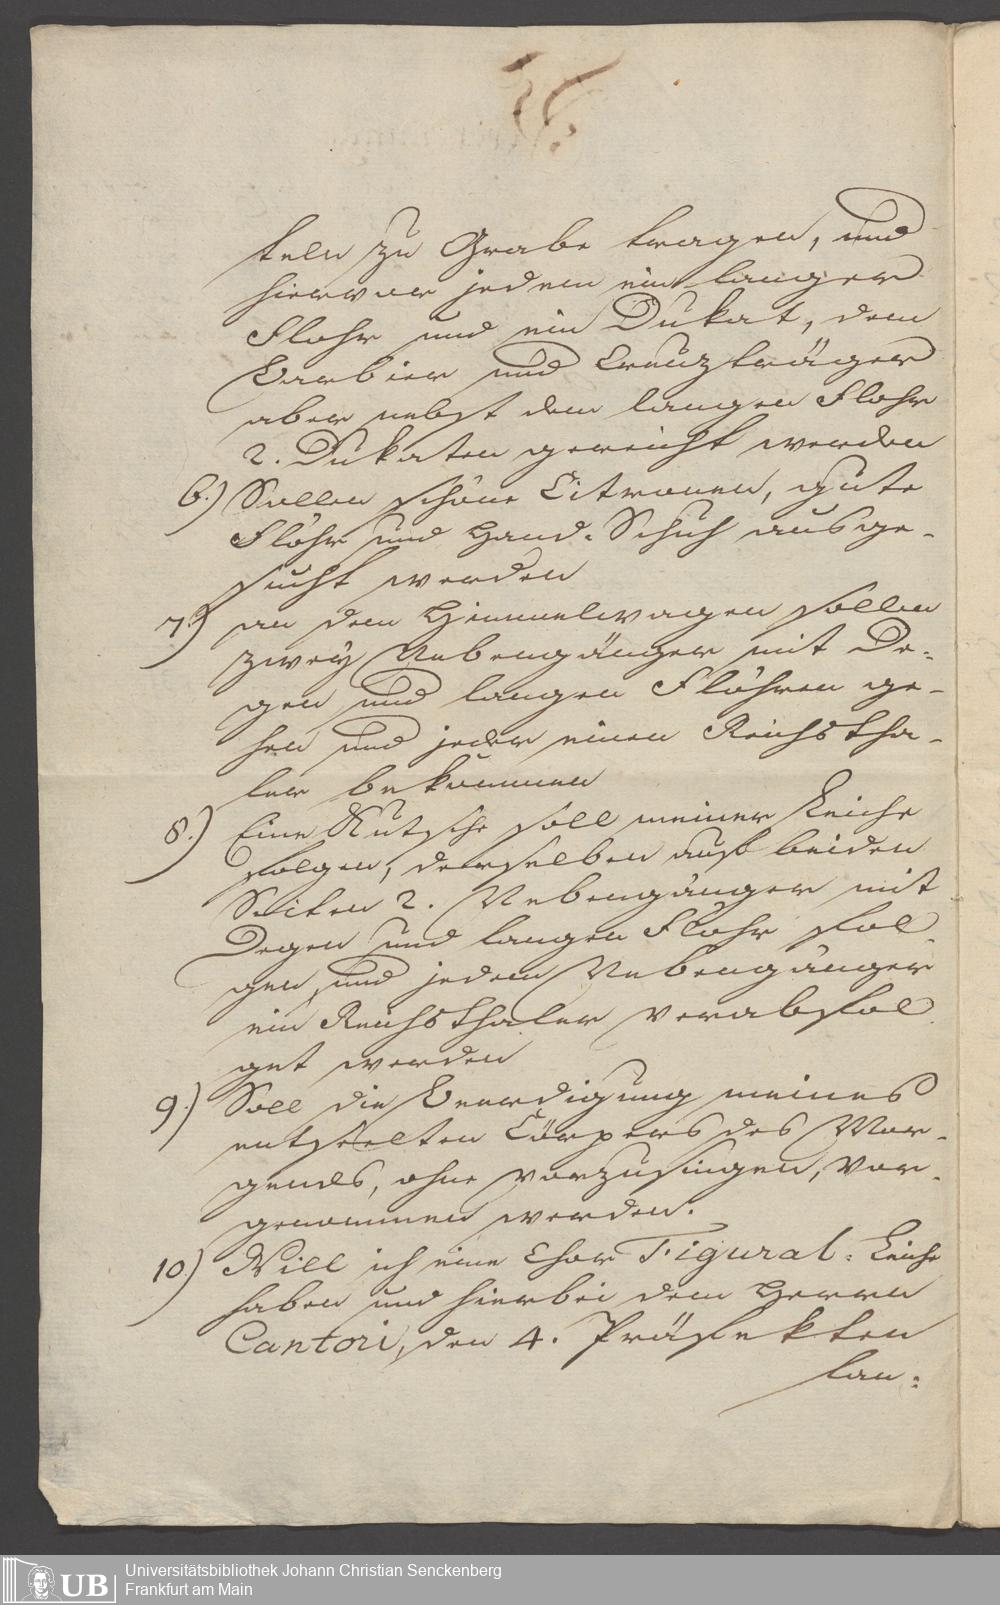 teln zu Grabe tragen, und
hiervor jedem ein langer
Flohr und ein Dukat, dem
Barbier und Creuzträger
aber nebst dem langen Flohr
2. Dukaten gereicht werden
6.) Sollen schöne Citronen, gute
Flöhr und Hand-Schuh ausge-
sucht werden
7.) an dem Himmelwagen sollen
zwey Nebengänger mit De-
gen und langen Flöhren ge-
hen und jeder einen Reichstha-
ler bekommen
8.) Eine Kutsche soll meiner Leiche
folgen, derselben auf beiden
Seiten 2. Nebengänger mit
Degen und langen Flohr fol-
gen, und jedem Nebengänger
ein Reichsthaler verabfol
get werden
9.) Soll die Beerdigung meines
entseelten Cörpers des Mor-
gends, ohne vorzusingen, vor-
genommen werden.
10.) Will ich eine Chor Figural-Leiche
haben und hierbei dem Herrn
Cantori, den 4. Präfekten
lan-
Universitätsbibliothek Johann Christian Senckenberg
Frankfurt am Main
UB